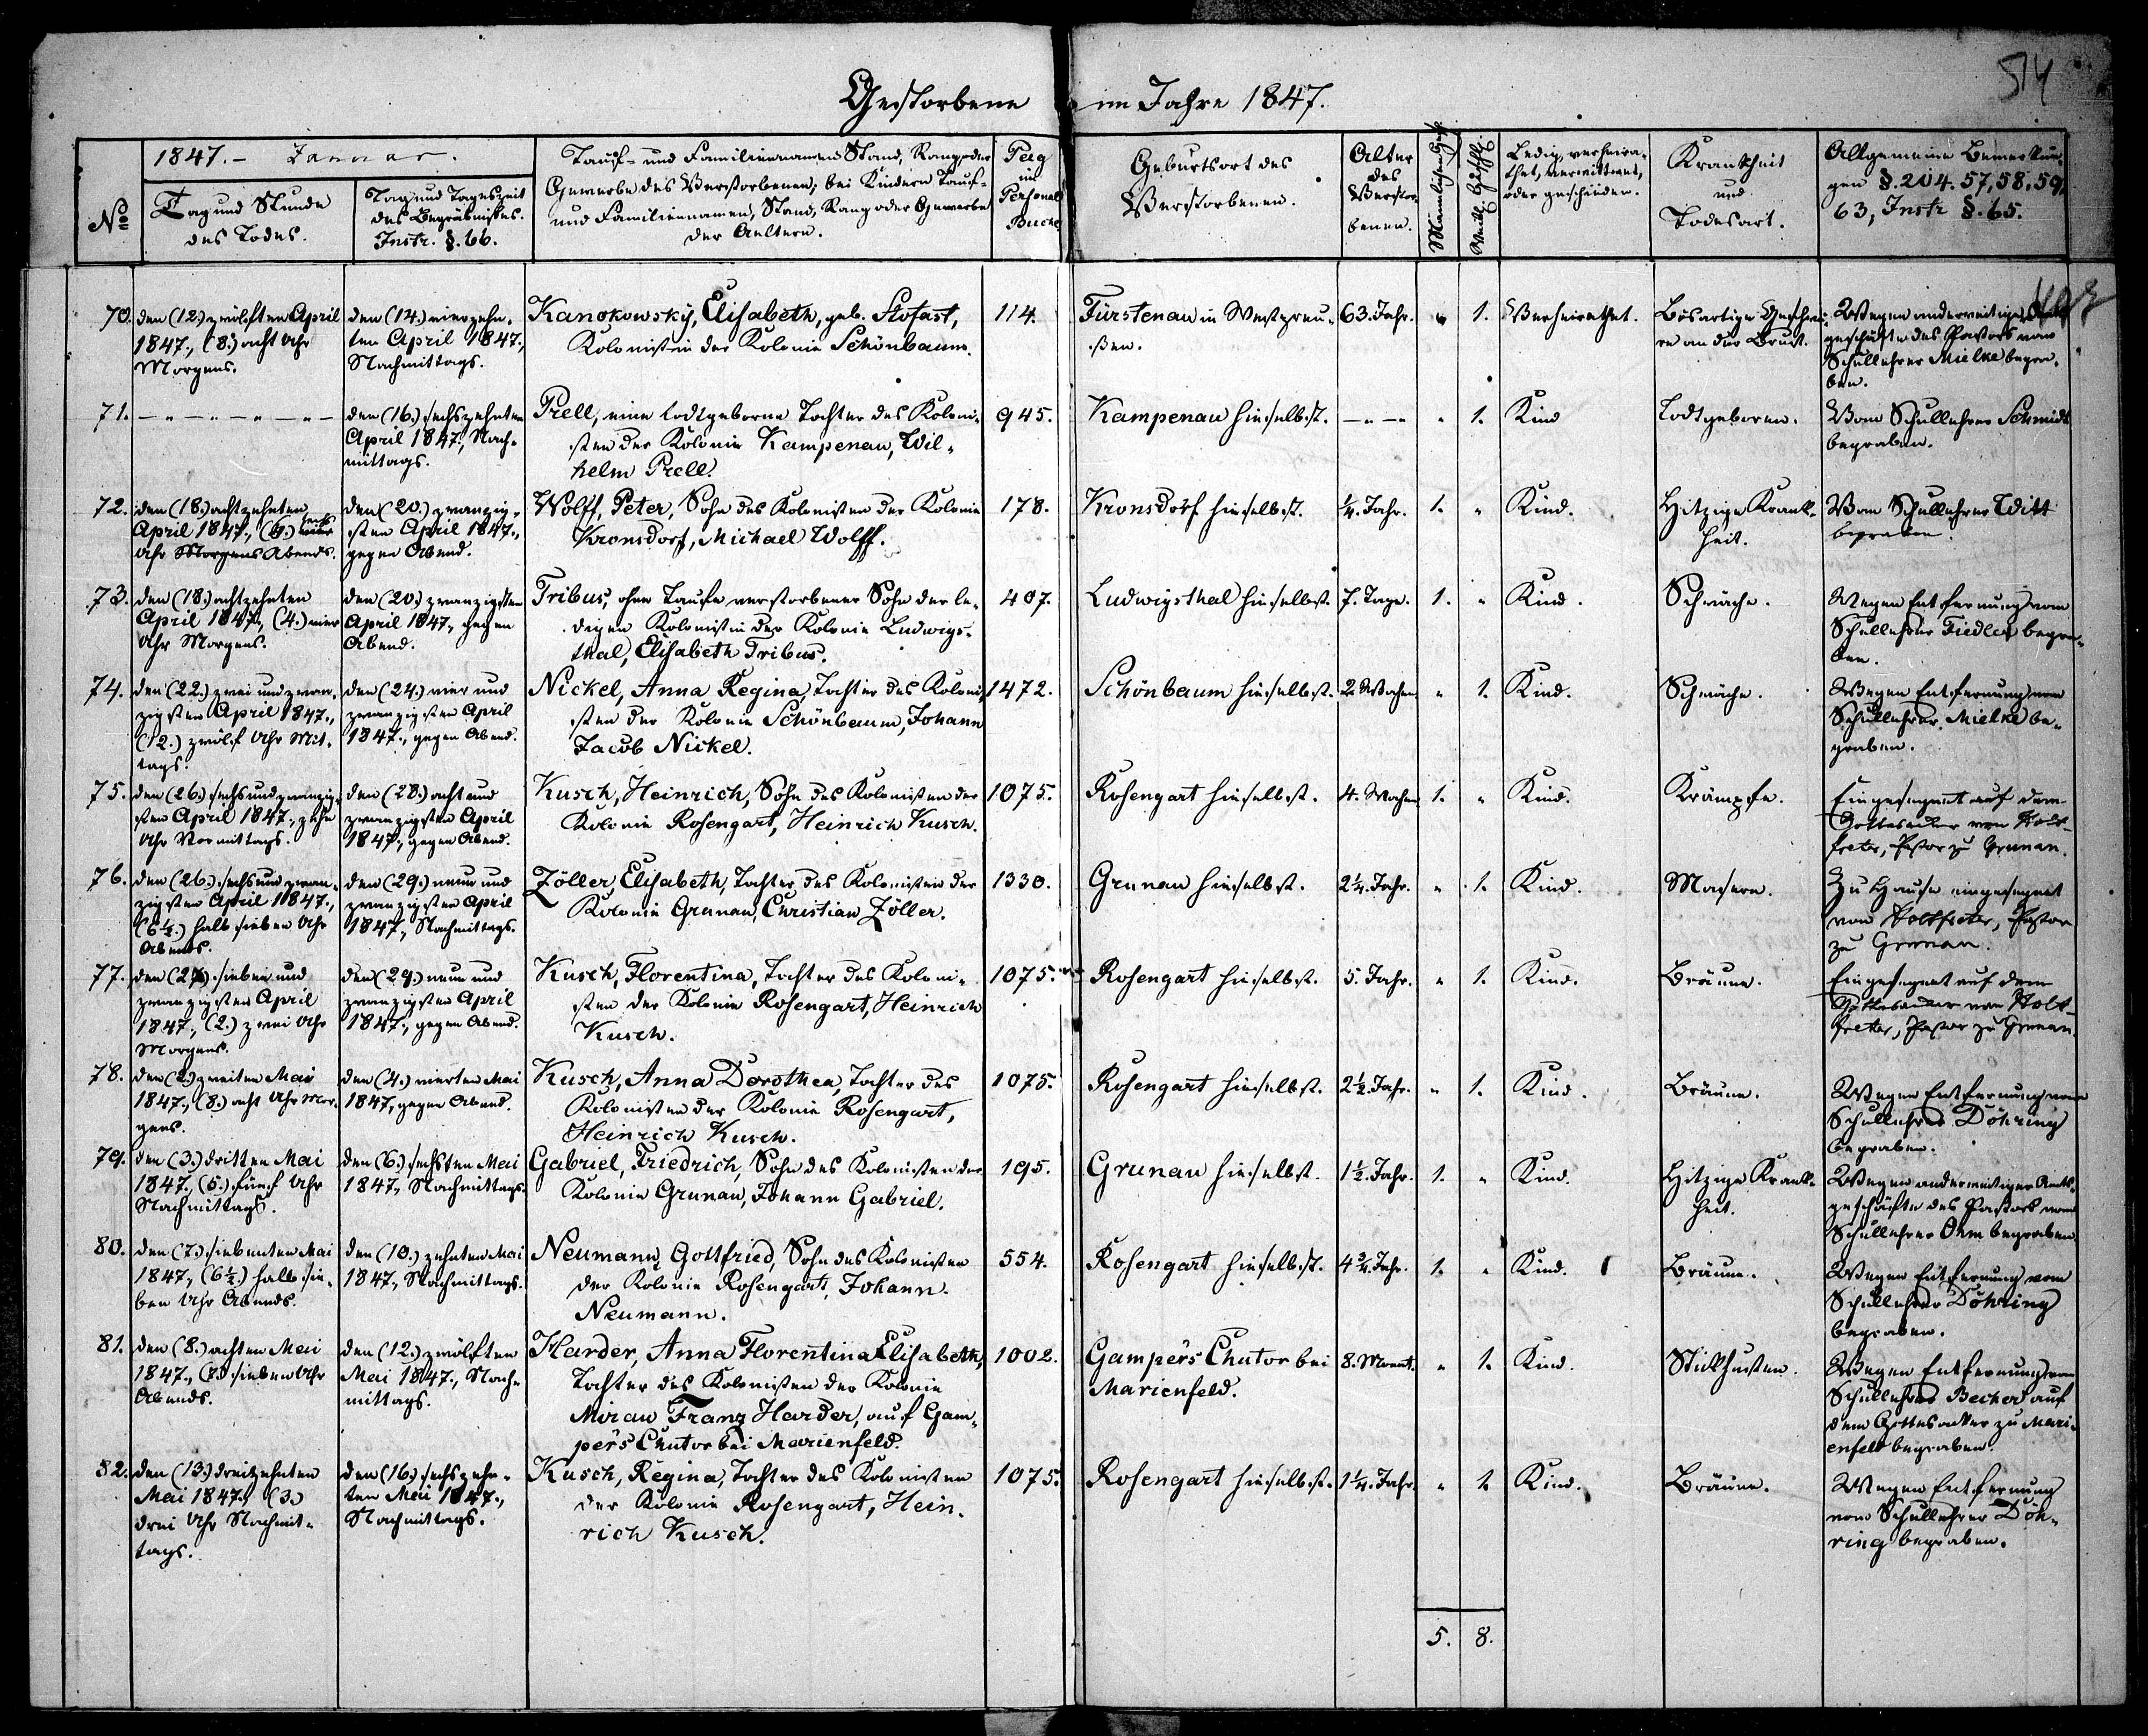 514
Gestorbene im Jahre 1847.
№
1847. - Januar.
Tag und Stunde
des Todes.
Tag und Tageszeit
des Begräbnißes.
Instr. §. 66.
Tauf- und Familiennamen Stand, Rang oder
Gewerbe des Verstorbenen; bei Kindern Tauf-
und Familiennamen, Stand, Rang oder Gewerbe
der Aeltern.
Pag
im
Personal
Buche
Geburtsort des
Verstorbenen.
Alter
des
Verstor
benen.
Männlichen Gesch.
Weibl. Geschl.
Ledig, verheira-
thet, verwittwet,
oder geschieden.
Krankheit
und
Todesart.
Allgemeine Bemerkun
gen §. 204. 57, 58, 59,
63, Instr §. 65.
70.
den (12.) zwölften April
1847., (8.) acht Uhr
Morgens.
den (14.) vierzehn-
ten April 1847.,
Nachmittags.
Kanokowsky, Elisabeth, geb. Stofast,
Kolonistin der Kolonie Schönbaum.
114.
Fürstenau in Westpreu-
ßen.
63. Jahr.
"
1.
Verheirathet.
Bösartige Geschwü-
re an der Brust.
Wegen anderweitiger
geschäfte des Pastors vom
Schullehrer Mielke begra-
ben.
71.
— " — " — " — " —
den (16.) sechszehnten
April 1847., Nach-
mittags.
Prell, eine todtgeborne Tochter des Koloni-
sten der Kolonie Kampenau, Wil-
helm Prell.
945.
Kampenau hieselbst.
— " —
"
1.
Kind
Todtgeboren.
Vom Schullehrer Schmidt
begraben.
72.
den (18.) achtzehnten
April 1847.,
Uhr Morgens Abends.
den (20.) zwanzig-
sten April 1847.,
gegen Abend.
Wolff, Peter, Sohn des Kolonisten der Kolonie
Kronsdorf, Michael Wolff.
178.
Kronsdorf hieselbst.
¼. Jahr.
1.
"
Kind.
Hitzige Krank-
heit.
Vom Schullehrer Witt
begraben.
73.
den (18.) achtzehnten
April 1847., (4.) vier
Uhr Morgens.
den (20.) zwanzigsten
April 1847., gegen
Abend.
Tribus, ohne Taufe verstorbener Sohn der le-
digen Kolonistin der Kolonie Ludwigs-
thal, Elisabeth Tribus.
407.
Ludwigsthal hieselbst.
7. Tage.
1.
"
Kind.
Schwäche.
Wegen Entfernung vom
Schullehrer Fiedler begra-
ben.
74.
den (22.) zwei und zwan-
zigsten April 1847.,
(12.) zwölf Uhr Mit-
tags.
den (24.) vier und
zwanzigsten April
1847., gegen Abend.
Nickel, Anna Regina, Tochter des Koloni-
sten der Kolonie Schönbaum, Johann
Jacob Nickel.
1472.
Schönbaum hieselbst.
2. Wochen
"
1.
Kind.
Schwäche.
Wegen Entfernung vom
Schullehrer Mielke be-
graben.
75.
den (26.) sechs und zwanzig-
sten April 1847., zehn
Uhr Vormittags.
den (28.) acht und
zwanzigsten April
1847., gegen Abend.
Kusch, Heinrich, Sohn des Kolonisten der
Kolonie Rosengart, Heinrich Kusch.
1075.
Rosengart hieselbst.
4. Wochen
1.
"
Kind.
Krämpfe.
Eingesegnet auf dem
Gottesacker von Holt-
freter, Pastor zu Grunau.
76.
den (26.) sechs und zwan-
zigsten April 1847.,
(6½.) halb sieben Uhr
Abends.
den (29.) neun und
zwanzigsten April
1847., Nachmittags.
Zöller, Elisabeth, Tochter des Kolonisten der
Kolonie Grunau, Christian Zöller.
1330.
Grunau hieselbst.
2¼. Jahr.
"
1.
Kind.
Masern.
Zu Hause eingesegnet
von Holtfreter, Pastor
zu Grunau.
77.
den (27.) sieben und
zwanzigsten April
1847., (2.) zwei Uhr
Morgens.
den (29.) neun und
zwanzigsten April
1847., gegen Abend.
Kusch, Florentina, Tochter des Koloni-
sten der Kolonie Rosengart, Heinrich
Kusch.
1075.
Rosengart hieselbst.
5. Jahr.
"
1.
Kind.
Bräune.
Eingesegnet auf dem
Gottesacker von Holt-
freter, Pastor zu Grunau.
78.
den (2.) zweiten Mai
1847., (8.) acht Uhr Mor-
gens.
den (4.) vierten Mai
1847., gegen Abend.
Kusch, Anna Dorothea, Tochter des
Kolonisten der Kolonie Rosengart,
Heinrich Kusch.
1075.
Rosengart hieselbst.
2½. Jahr.
"
1.
Kind.
Bräune.
Wegen Entfernung vom
Schullehrer Döhring
begraben.
79.
den (3.) dritten Mai
1847., (5.) fünf Uhr
Nachmittags.
den (6.) sechsten Mai
1847., Nachmittags.
Gabriel, Friedrich, Sohn des Kolonisten der
Kolonie Grunau, Johann Gabriel.
195.
Grunau hieselbst.
1½. Jahr.
1.
"
Kind.
Hitzige Krank-
heit.
Wegen anderweitiger Amts-
geschäfte des Pastors vom
Schullehrer Oem begraben.
80.
den (7.) siebenten Mai
1847., (6½.) halb sie-
ben Uhr Abends.
den (10.) zehnten Mai
1847., Nachmittags.
Neumann, Gottfried, Sohn des Kolonisten
der Kolonie Rosengart, Johann
Neumann.
554.
Rosengart hieselbst.
4¾. Jahr.
1.
"
Kind.
Bräune.
Wegen Entfernung vom
Schullehrer Döhring
begraben.
81.
den (8.) achten Mai
1847., (7.) sieben Uhr
Abends.
den (12.) zwölften
Mai 1847., Nach-
mittags.
Harder, Anna Florentina Elisabeth,
Tochter des Kolonisten der Kolonie
Mirau, Franz Harder, auf Gam-
pers Chutor bei Marienfeld.
1002.
Gampers Chutor bei
Marienfeld.
8. Monat.
"
1.
Kind.
Stickhusten.
Wegen Entfernung vom
Schullehrer Becker auf
dem Gottesacker zu Mari-
enfeld begraben.
82.
den (13.) dreizehnten
Mai 1847., (3.)
drei Uhr Nachmit-
tags.
den (16.) sechszehn-
ten Mai 1847.,
Nachmittags.
Kusch, Regina, Tochter des Kolonisten
der Kolonie Rosengart, Hein-
rich Kusch.
1075.
Rosengart hieselbst.
1¼. Jahr.
"
1
Kind.
Bräune.
Wegen Entfernung
vom Schullehrer Döh-
ring begraben.
5.
8.